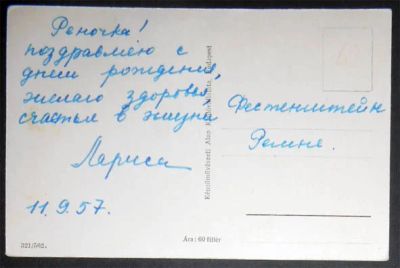 Реночка!
поздравляю с
днем рождения,
желаю здоровья
счастья в жизни
Лариса
11.9.57.
Фестенштейн
Ремне.
Képzőművészeti Alap Budapest
Ára: 60 fillér
321/562.